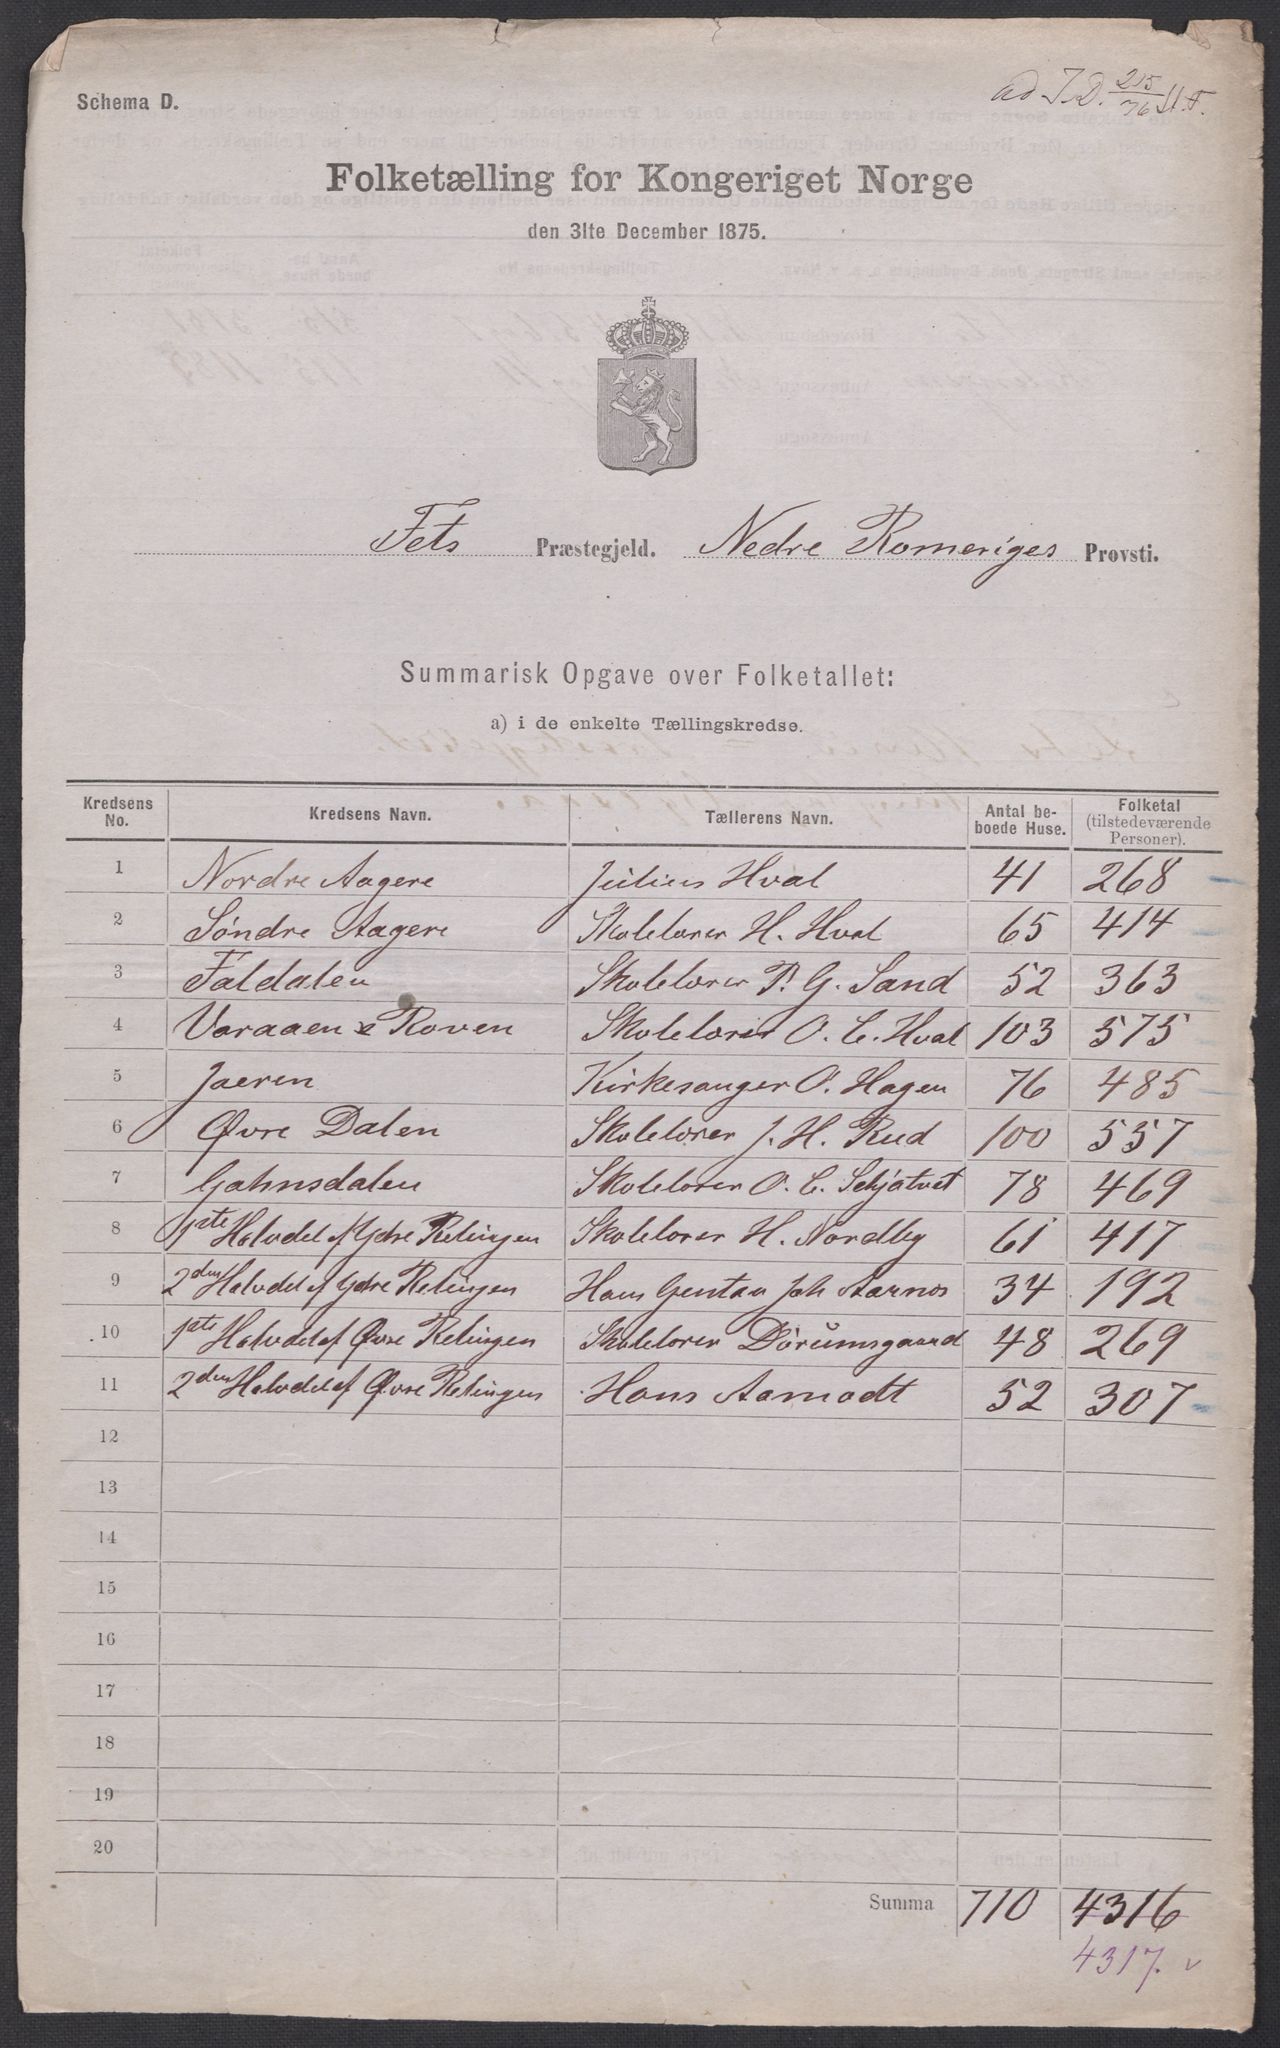 ad J.D. 215/76
Schema D.
Folketælling for Kongeriget Norge
den 31te December 1875.
Fets Præstegjeld. Nedre Romeriges Provsti.
Summarisk Opgave over Folketallet:
a) i de enkelte Tællingskredse.
Kredsens No. Kredsens Navn. Tællerens Navn. Antal beboede Huse. Folketal (tilstedeværende Personer).
1 Nordre Aagere Julius Hval 41 268
2 Søndre Aagere Skolelærer H. Hval 65 414
3 Faldalen Skolelærer P. G. Sand 52 363
4 Varaaen & Roven Skolelærer O. C. Hval 103 575
5 Jaeren Kirkesanger O. Hagen 76 485
6 Øvre Dalen Skolelærer J. H. Rud 100 557
7 Gahnsdalen Skolelærer O. C. Schjatvet 78 469
8 1ste Halvdel af Ydre Relingen Skolelærer H. Nordby 61 417
9 2den Halvdel af Ydre Relingen Hans Gustav Joh Aarnos 34 192
10 1ste Halvdel af Øvre Relingen Skolelærer Dørumsgaard 48 269
11 2den Halvdel af Øvre Relingen Hans Aamodt 52 307
12
13
14
15
16
17
18
19
20
Summa 710 4316
4317. v